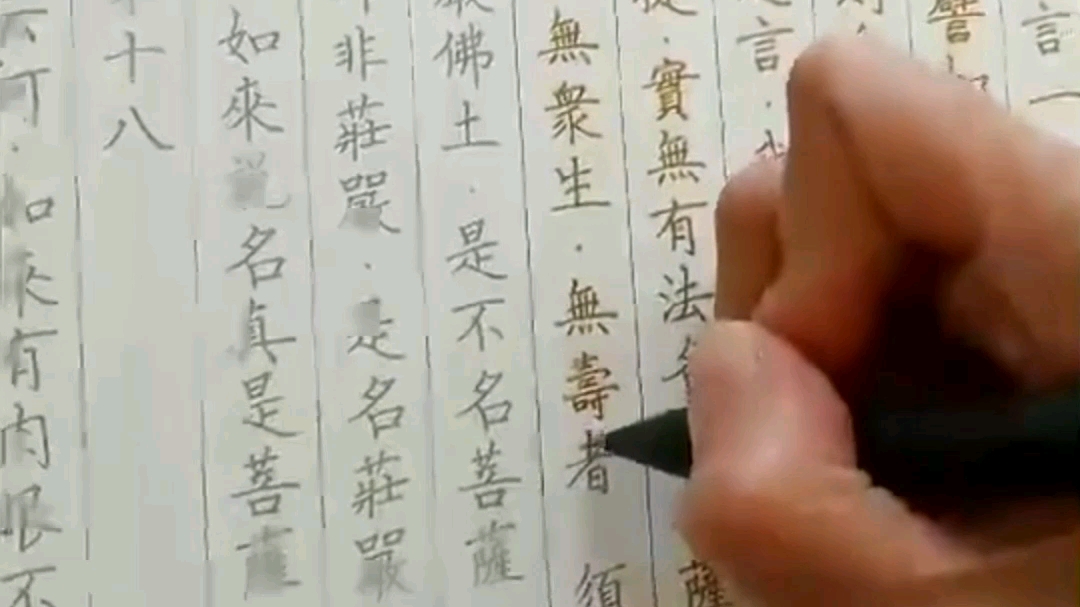 言一
譬
言．
實無有法
薩
無衆生．無壽者 須
佛土．是不名菩薩
非莊嚴．是名莊嚴
如來說名真是菩薩
十八
如來有肉眼不